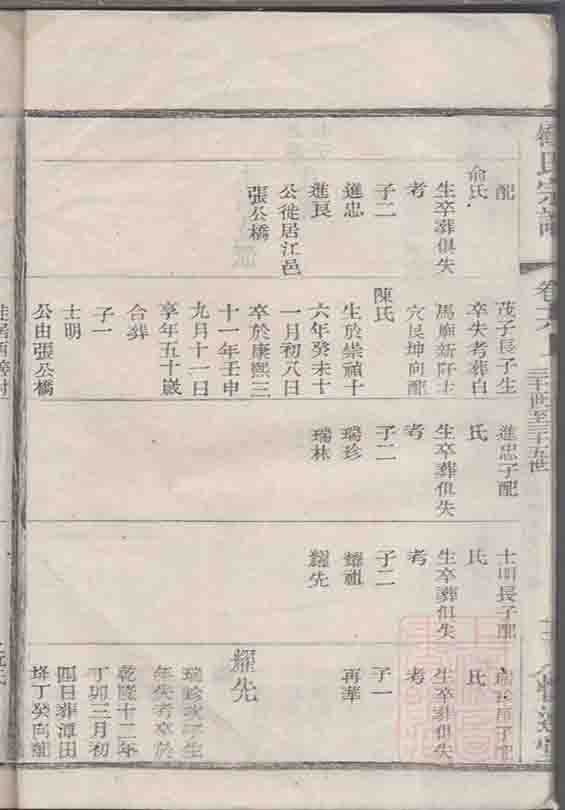 氏宗譜
卷
三十一世至三十五世
配
俞氏
生卒葬俱失
考
子二
進忠
進良
公徙居江邑
張公橋
茂子長子生
卒失考葬白
馬廟新阡土
穴艮坤向配
陳氏
生於崇禎十
六年癸未十
一月初八日
卒於康熙三
十一年壬申
九月十一日
享年五十歲
合葬
子一
士明
公由張公橋
進忠子配
氏
生卒葬俱失
考
子二
瑞珍
瑞林
士明長子配
氏
生卒葬俱失
考
子二
耀祖
耀先
子配
氏
生卒葬俱失
考
子一
再華
耀先
瑞珍次子生
年失考卒於
乾隆十二年
丁卯三月初
四日葬潭田
丁癸向配